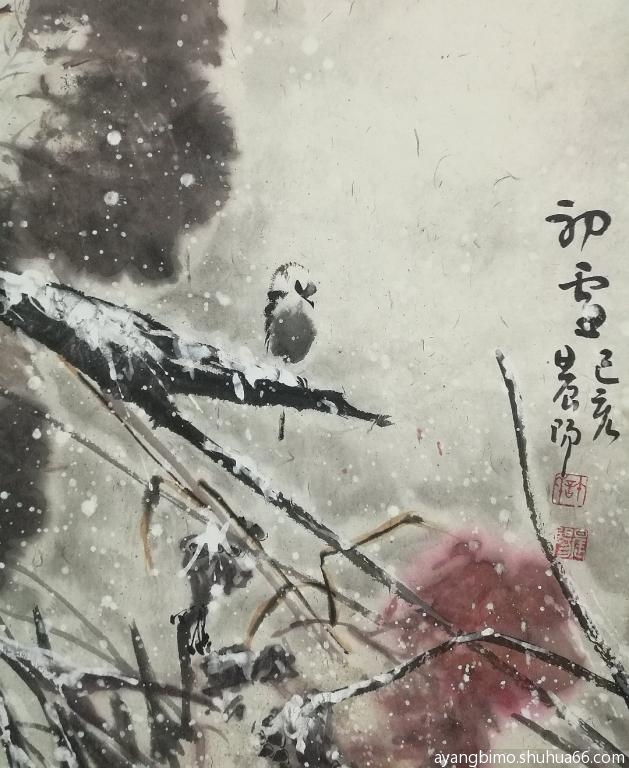 初雪
己亥
晨阳
ayangbimo.shuhua66.com